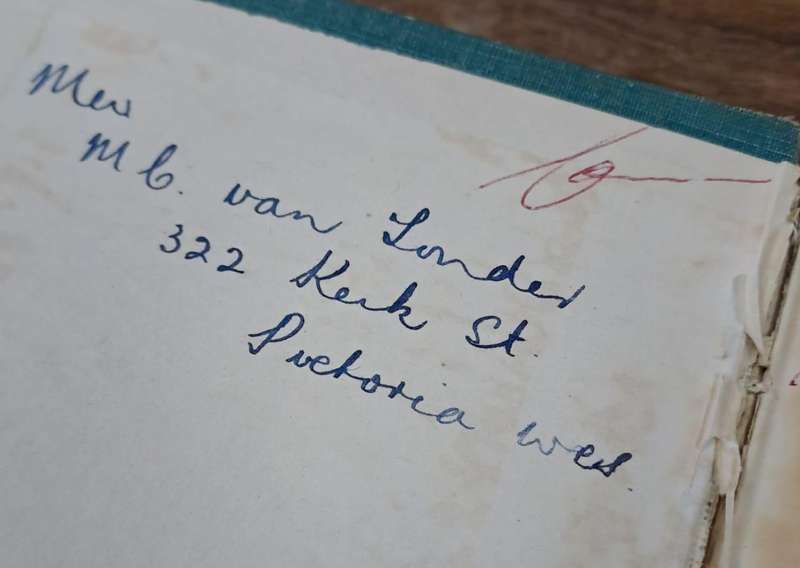 Mev
M C. van Tonder
322 Kerk St.
Pretoria Wes.